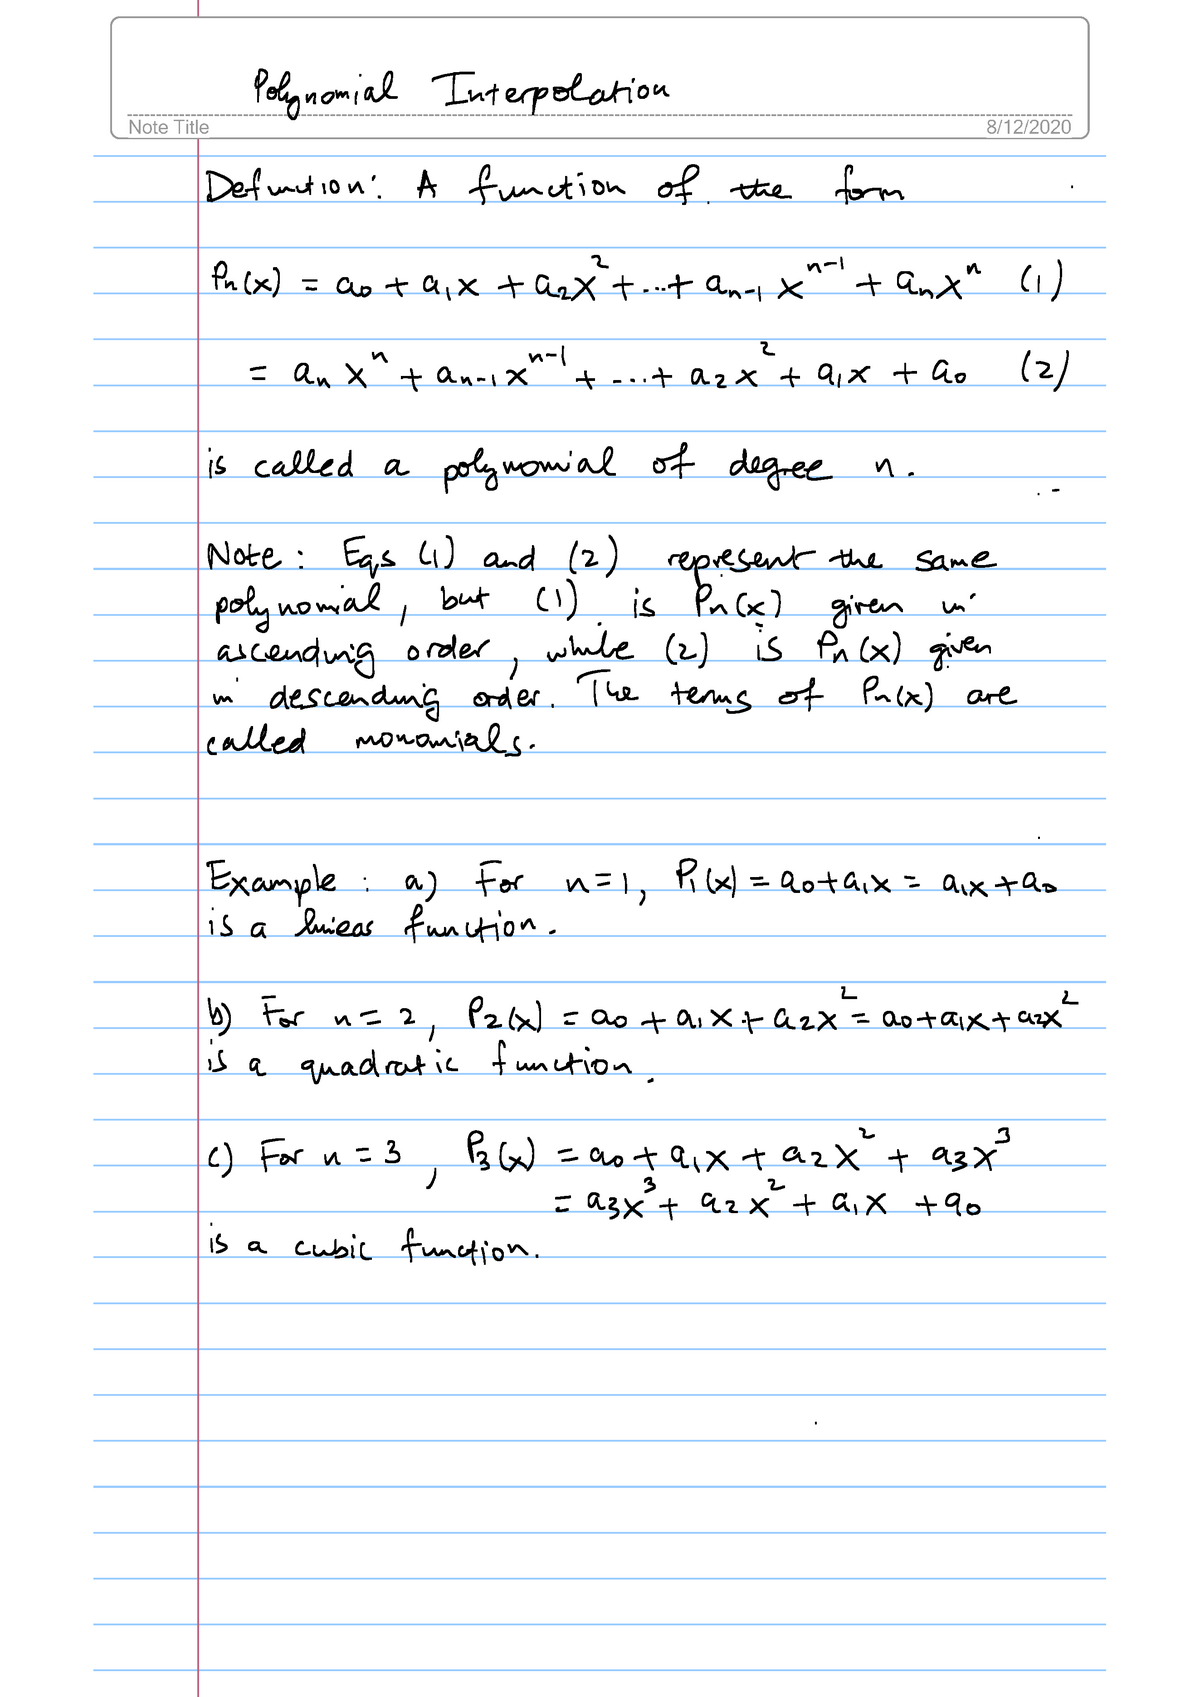 Polynomial Interpolation
Note Title
8/12/2020
Definition: A function of the form
Pn(x) = a0 + a1x + a2x² + ... + an-1 xⁿ⁻¹ + anxⁿ (1)
= an xⁿ + an-1 xⁿ⁻¹ + ... + a2x² + a1x + a0 (2)
is called a polynomial of degree n.
Note : Eqs (1) and (2) represent the same
polynomial, but (1) is Pn(x) given in
ascending order, while (2) is Pn(x) given
in descending order. The terms of Pn(x) are
called monomials.
Example : a) For n=1, P1(x) = a0+a1x = a1x+a0
is a linear function.
b) For n = 2, P2(x) = a0 + a1x + a2x² = a0+a1x+a2x²
is a quadratic function.
c) For n = 3, P3(x) = a0 + a1x + a2x² + a3x³
= a3x³ + a2x² + a1x + a0
is a cubic function.